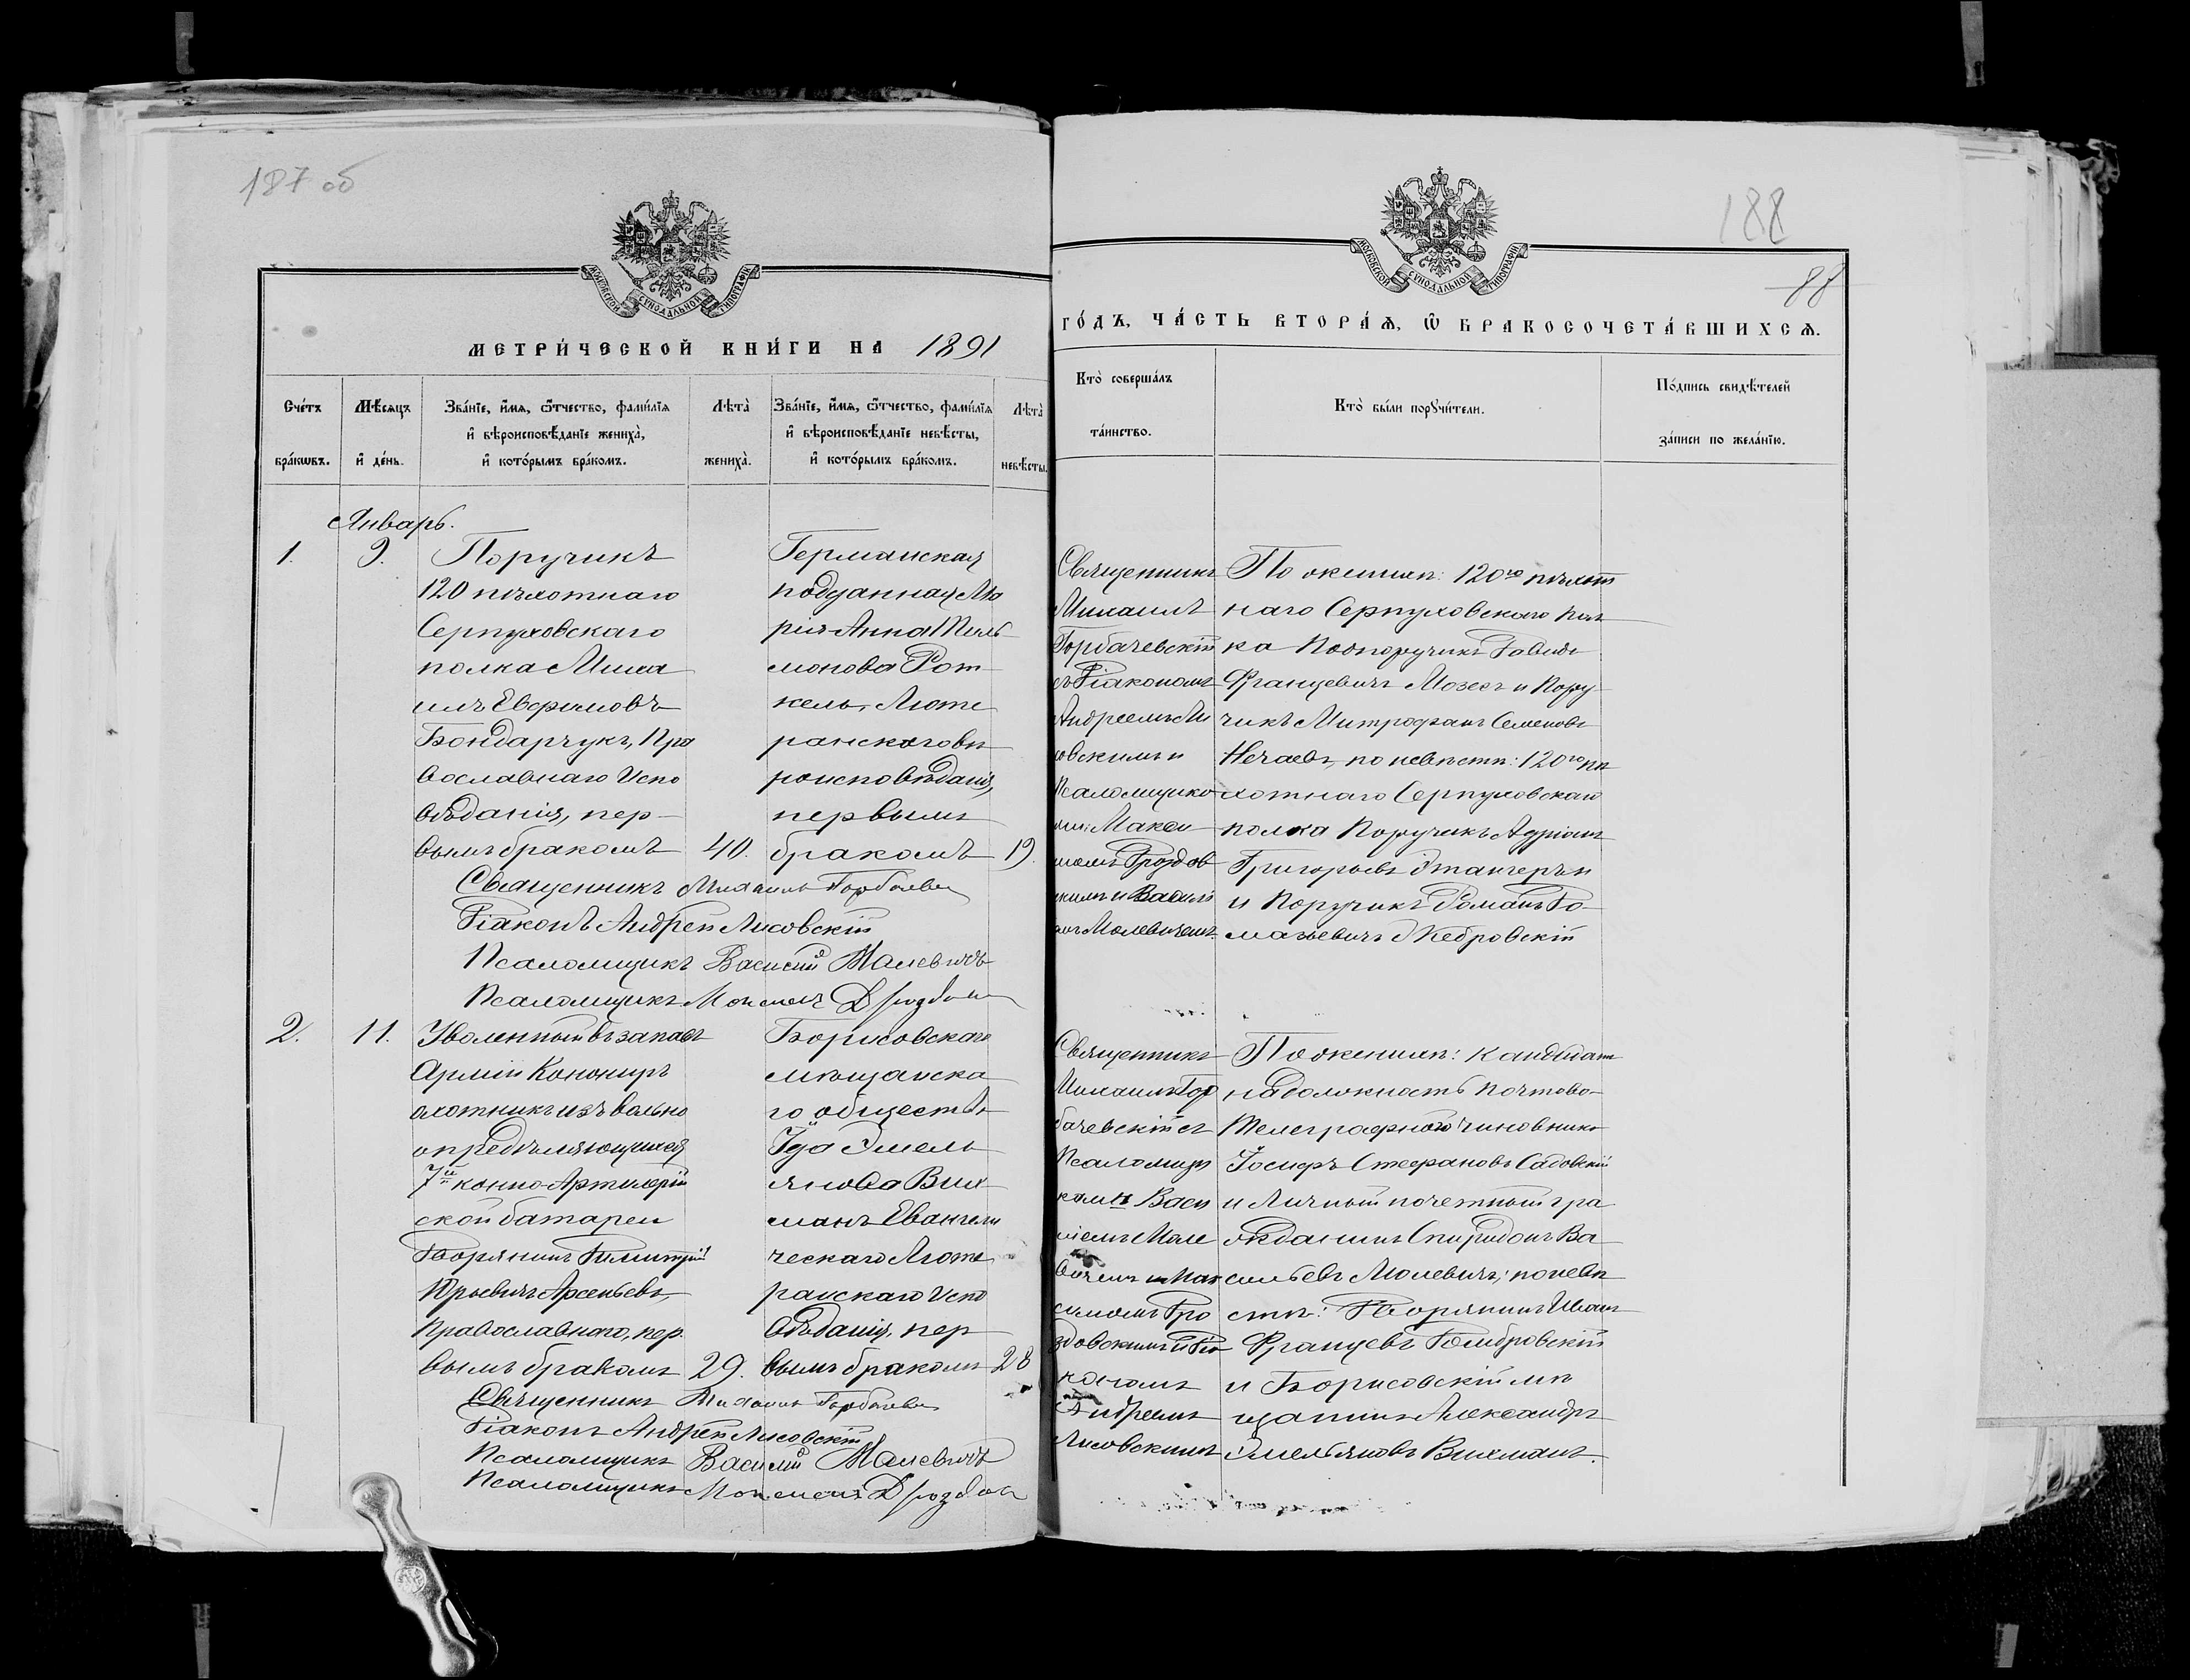 187 об
МОСКОВСКОЙ СΥНОДАЛЬНОЙ ТИПОГРАФІИ
МЕТРИ́ЧЕСКОЙ КНИ́ГИ НА 1891
Сче́тъ бра́кѡвъ.
Мѣ́сяцъ и҆ де́нь.
Зва́нїе, и҆́мѧ, ѻ҆́тчество, фами́лїѧ
и҆ вѣроисповѣ́данїе жениха̀,
и҆ кото́рымъ бра́комъ.
Лѣта̀ жениха̀.
Зва́нїе, и҆́мѧ, ѻ҆́тчество, фами́лїѧ
и҆ вѣроисповѣ́данїе невѣ́сты,
и҆ кото́рымъ бра́комъ.
Лѣта̀ невѣ́сты.
Январь.
1. 9.
Поручикъ
120 пѣхотнаго
Серпуховскаго
полка Миха
илъ Евфимовъ
Бондарчукъ, Пра
вославнаго испо
вѣданія, пер-
вымъ бракомъ 40.
Германская
подданная Ма
рія-Анна
монова Рот
кель, Люте
ранскаго вѣ
роисповѣданія,
первымъ
бракомъ 19.
Священникъ Михаилъ Горбачев
Діаконъ Андрей Лисовскій
Псаломщикъ Василій Малевичъ
Псаломщикъ Максимъ Дроздов
2. 11.
Уволенный въ запасъ
Арміи Канониръ
охотникъ изъ вольно
опредѣляющихся
7й конно-Артиллерій
ской батареи
Дворянинъ Димитрій
Юрьевичъ Арсеньевъ,
Православнаго, пер
вымъ бракомъ 29.
Борисовскаго
мѣщанска
го общества
Ида Эмель
янова Вих
манъ Евангели
ческаго Люте
ранскаго испо
вѣданія, пер
вымъ бракомъ 28
Священникъ Михаилъ Горбачев
Діаконъ Андрей Лисовскій
Псаломщикъ Василій Малевичъ
Псаломщикъ Максимъ Дроздов
188
88
МОСКОВСКОЙ СΥНОДАЛЬНОЙ ТИПОГРАФІИ
ГО́ДЪ, ЧА́СТЬ ВТОРА́Ѧ, Ѽ БРАКОСОЧЕТА́ВШИХСѦ.
Кто̀ соверша́лъ та́инство.
Кто̀ бы́ли порꙋчи́тели.
По́дпись свидѣ́телей за́писи по жела́нїю.
Священникъ
Михаилъ
Горбачевскій
съ Діакономъ
Андреемъ Ли
совскимъ и
Псаломщика
ми: Макси
момъ Дроздов
скимъ и Васили
емъ Малевичемъ.
По женихѣ: 120го пѣхот
наго Серпуховскаго пол
ка Подпоручикъ Давидъ
Францевичъ Мозесъ и Пору-
чикъ Митрофанъ Семеновъ
Нечаевъ, по невѣстѣ: 120го пѣ
хотнаго Серпуховскаго
полка Поручикъ Адріанъ
Григорьевъ Штангеръ и
и Поручикъ Романъ До-
матьевичъ Жебровскій
Священникъ
Михаилъ Гор
бачевскій съ
Псаломщи
ками Васи
ліемъ Мале
вичемъ и Мак
симомъ Дро
здовскимъ и Діа
кономъ
Андреемъ
Лисовскимъ
По женихѣ: Кандидатъ
на должность почтово-
телеграфнаго чиновника
Іосифъ Стефановъ Садовскій
и Личный почетный гра
жданинъ Спиридонъ Ва
сильевъ Малевичъ; по невѣ
стѣ: Дворянинъ Иванъ
Францевъ Домбровскій
и Борисовскій мѣ
щанинъ Александръ
Эмельяновъ Вихманъ.